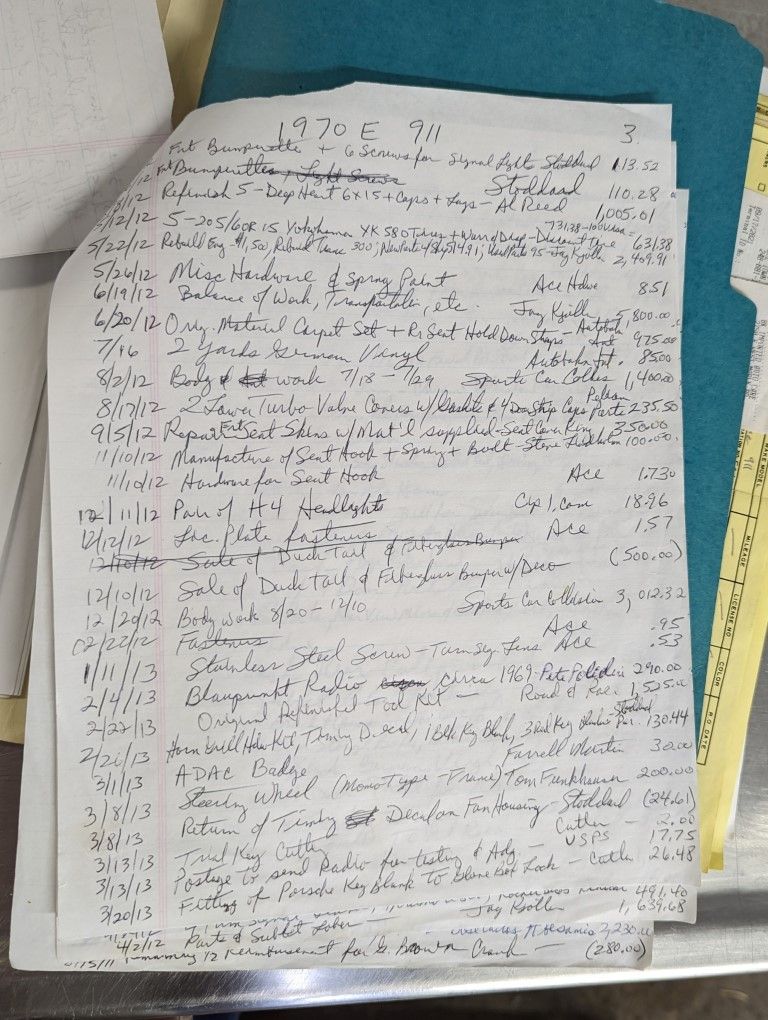 1970 E 911 3.
Frt Bumperette + 6 Screws for Signal Light Stoddard 113.52
Frt Bumperettes, Light Screws Stoddard 110.28
Refinish 5 - Deep Heart 6x15 + Caps + Lugs - Al Reed 1,005.01
/12/12 5 - 205/60R 15 Yokohama YK 580 Tires + Warr & Disp - Discount Tire 631.38
731.38 - 100
5/22/12 Rebuild Eng - $1,500, Rebuild Trans 300, New Parts 95 - Jay Kjoller 2,409.91
5/26/12 Misc Hardware & Spray Paint Ace Hdwe 8.51
6/19/12 Balance of Work, Transportation, etc. Jay Kjoller 5,800.00
6/20/12 Orig. Material Carpet Set + Rr Seat Hold Down Straps - Autobahn Int 975.00
7/16 2 Yards German Vinyl Autobahn Int. 85.00
8/2/12 Body work 7/18 - 7/29 Sports Car Collis 1,400.00
8/17/12 2 Lower Turbo Valve Covers w/Gaskets & 4 Door Strip Caps Pelican Parts 235.50
9/5/12 Repair Frt Seat Skins w/ Mat'l supplied - Seat Cover King 350.00
11/10/12 Manufacture of Seat Hook + Spring + Bolt - Steve 100.00
11/10/12 Hardware for Seat Hook Ace 1.73
12/11/12 Pair of H4 Headlights Cip 1.com 18.96
12/12/12 Lic. Plate fasteners Ace 1.57
12/10/12 Sale of Duck Tail & Fiberglass Bumper
12/10/12 Sale of Duck Tail & Fiberglass Bumper w/Deco (500.00)
12/20/12 Body work 8/20 - 12/10 Sports Car Collision 3,012.32
02/22/12 Fasteners Ace .95
1/11/13 Stainless Steel Screw - Turn Sig. Lens Ace .53
2/4/13 Blaupunkt Radio circa 1969 - Pete 290.00
2/22/13 Original Refinished Tool Kit - Road & Race 1,525.00
2/26/13 Horn Grill Hdw Kit, Timing Decal, 1 Blk Key Blank, 3 Key Stoddard 130.44
3/1/13 ADAC Badge Farrell Martin 30.00
3/8/13 Steering Wheel (Momo Type - Frame) Tom Funkhouser 200.00
3/8/13 Return of Timing Decal on Fan Housing - Stoddard (24.61)
3/13/13 Trial Key Cutting Cutler - 2.00
3/13/13 Postage to send Radio for testing & Adj. - USPS 17.75
3/20/13 Fitting of Porsche Key Blank to Glove Box Lock - Cutler 26.48
491.40
4/2/12 Parts & Sublet Labor Jay Kjoller 1,639.68
2,230.00
/15/11 12 Reimbursement for G. Brown Crank - (280.00)
MAKE MODEL
MILEAGE
LICENSE NO
COLOR
R.O DATE